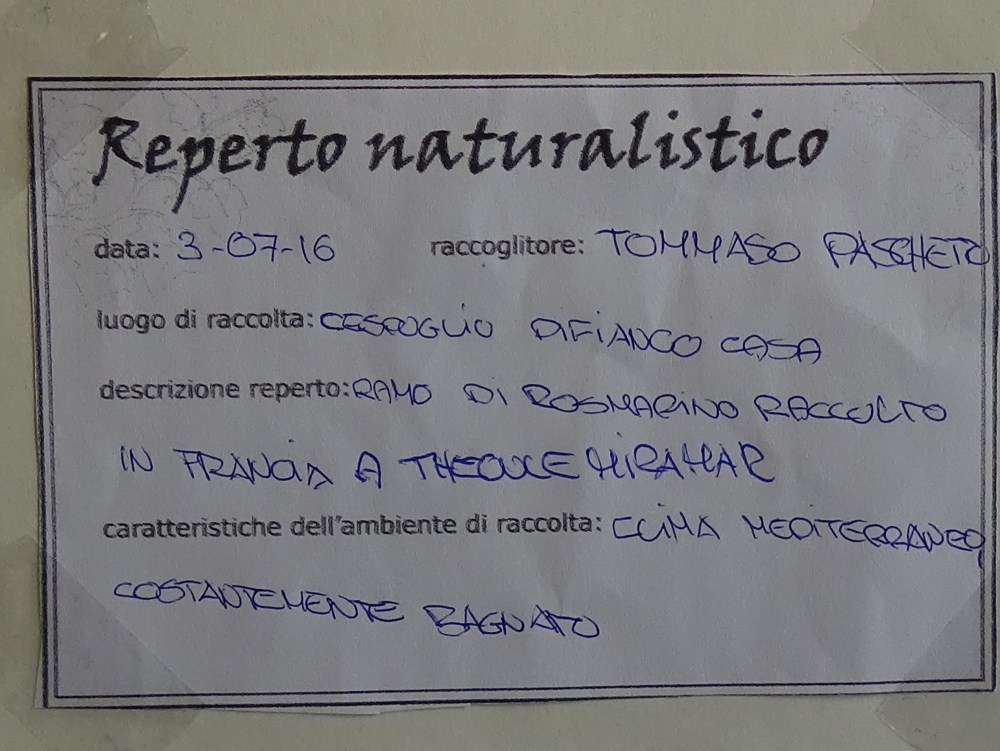 Reperto naturalistico
data: 3-07-16 raccoglitore: TOMMASO PASCHETO
luogo di raccolta: CESPUGLIO DIFIANCO CASA
descrizione reperto: RAMO DI ROSMARINO RACCOLTO
IN FRANCIA A THEOULE MIRAMAR
caratteristiche dell'ambiente di raccolta: CLIMA MEDITERRANEO,
COSTANTEMENTE BAGNATO